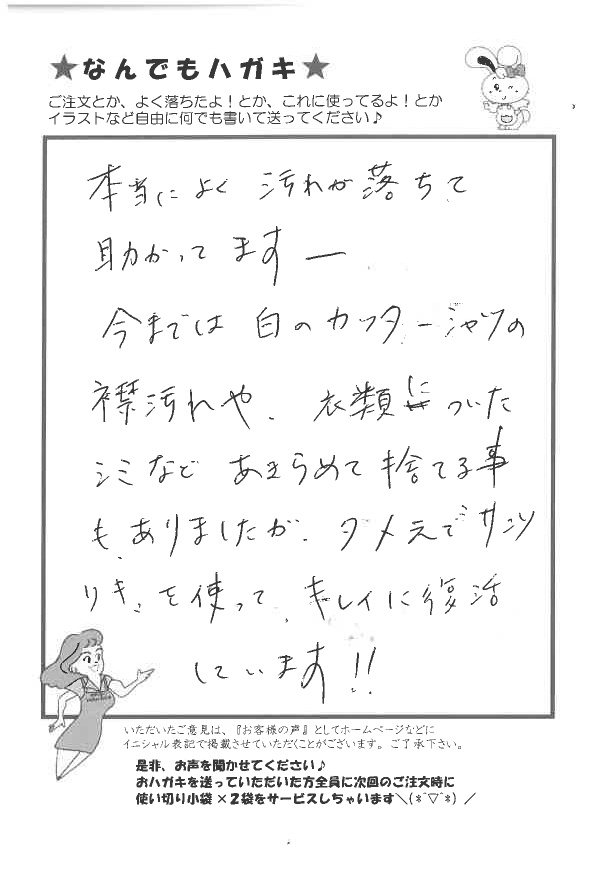 ★なんでもハガキ★
ご注文とか、よく落ちたよ！とか、これに使ってるよ！とか
イラストなど自由に何でも書いて送ってください♪
本当によく 汚れが落ちて
助かってますー
今までは 白のカッターシャツの
襟汚れや、衣類についた
シミなど あきらめて捨てる事
も、ありましたが、ダメ元でサンソ
リキ、を使って、キレイに復活
しています!!
いただいたご意見は、『お客様の声』としてホームページなどに
イニシャル表記で掲載させていただくことがございます。ご了承下さい。
是非、お声を聞かせてください♪
おハガキを送っていただいた方全員に次回のご注文時に
使い切り小袋×２袋をサービスしちゃいます＼(*ˆ▽ˆ*)／